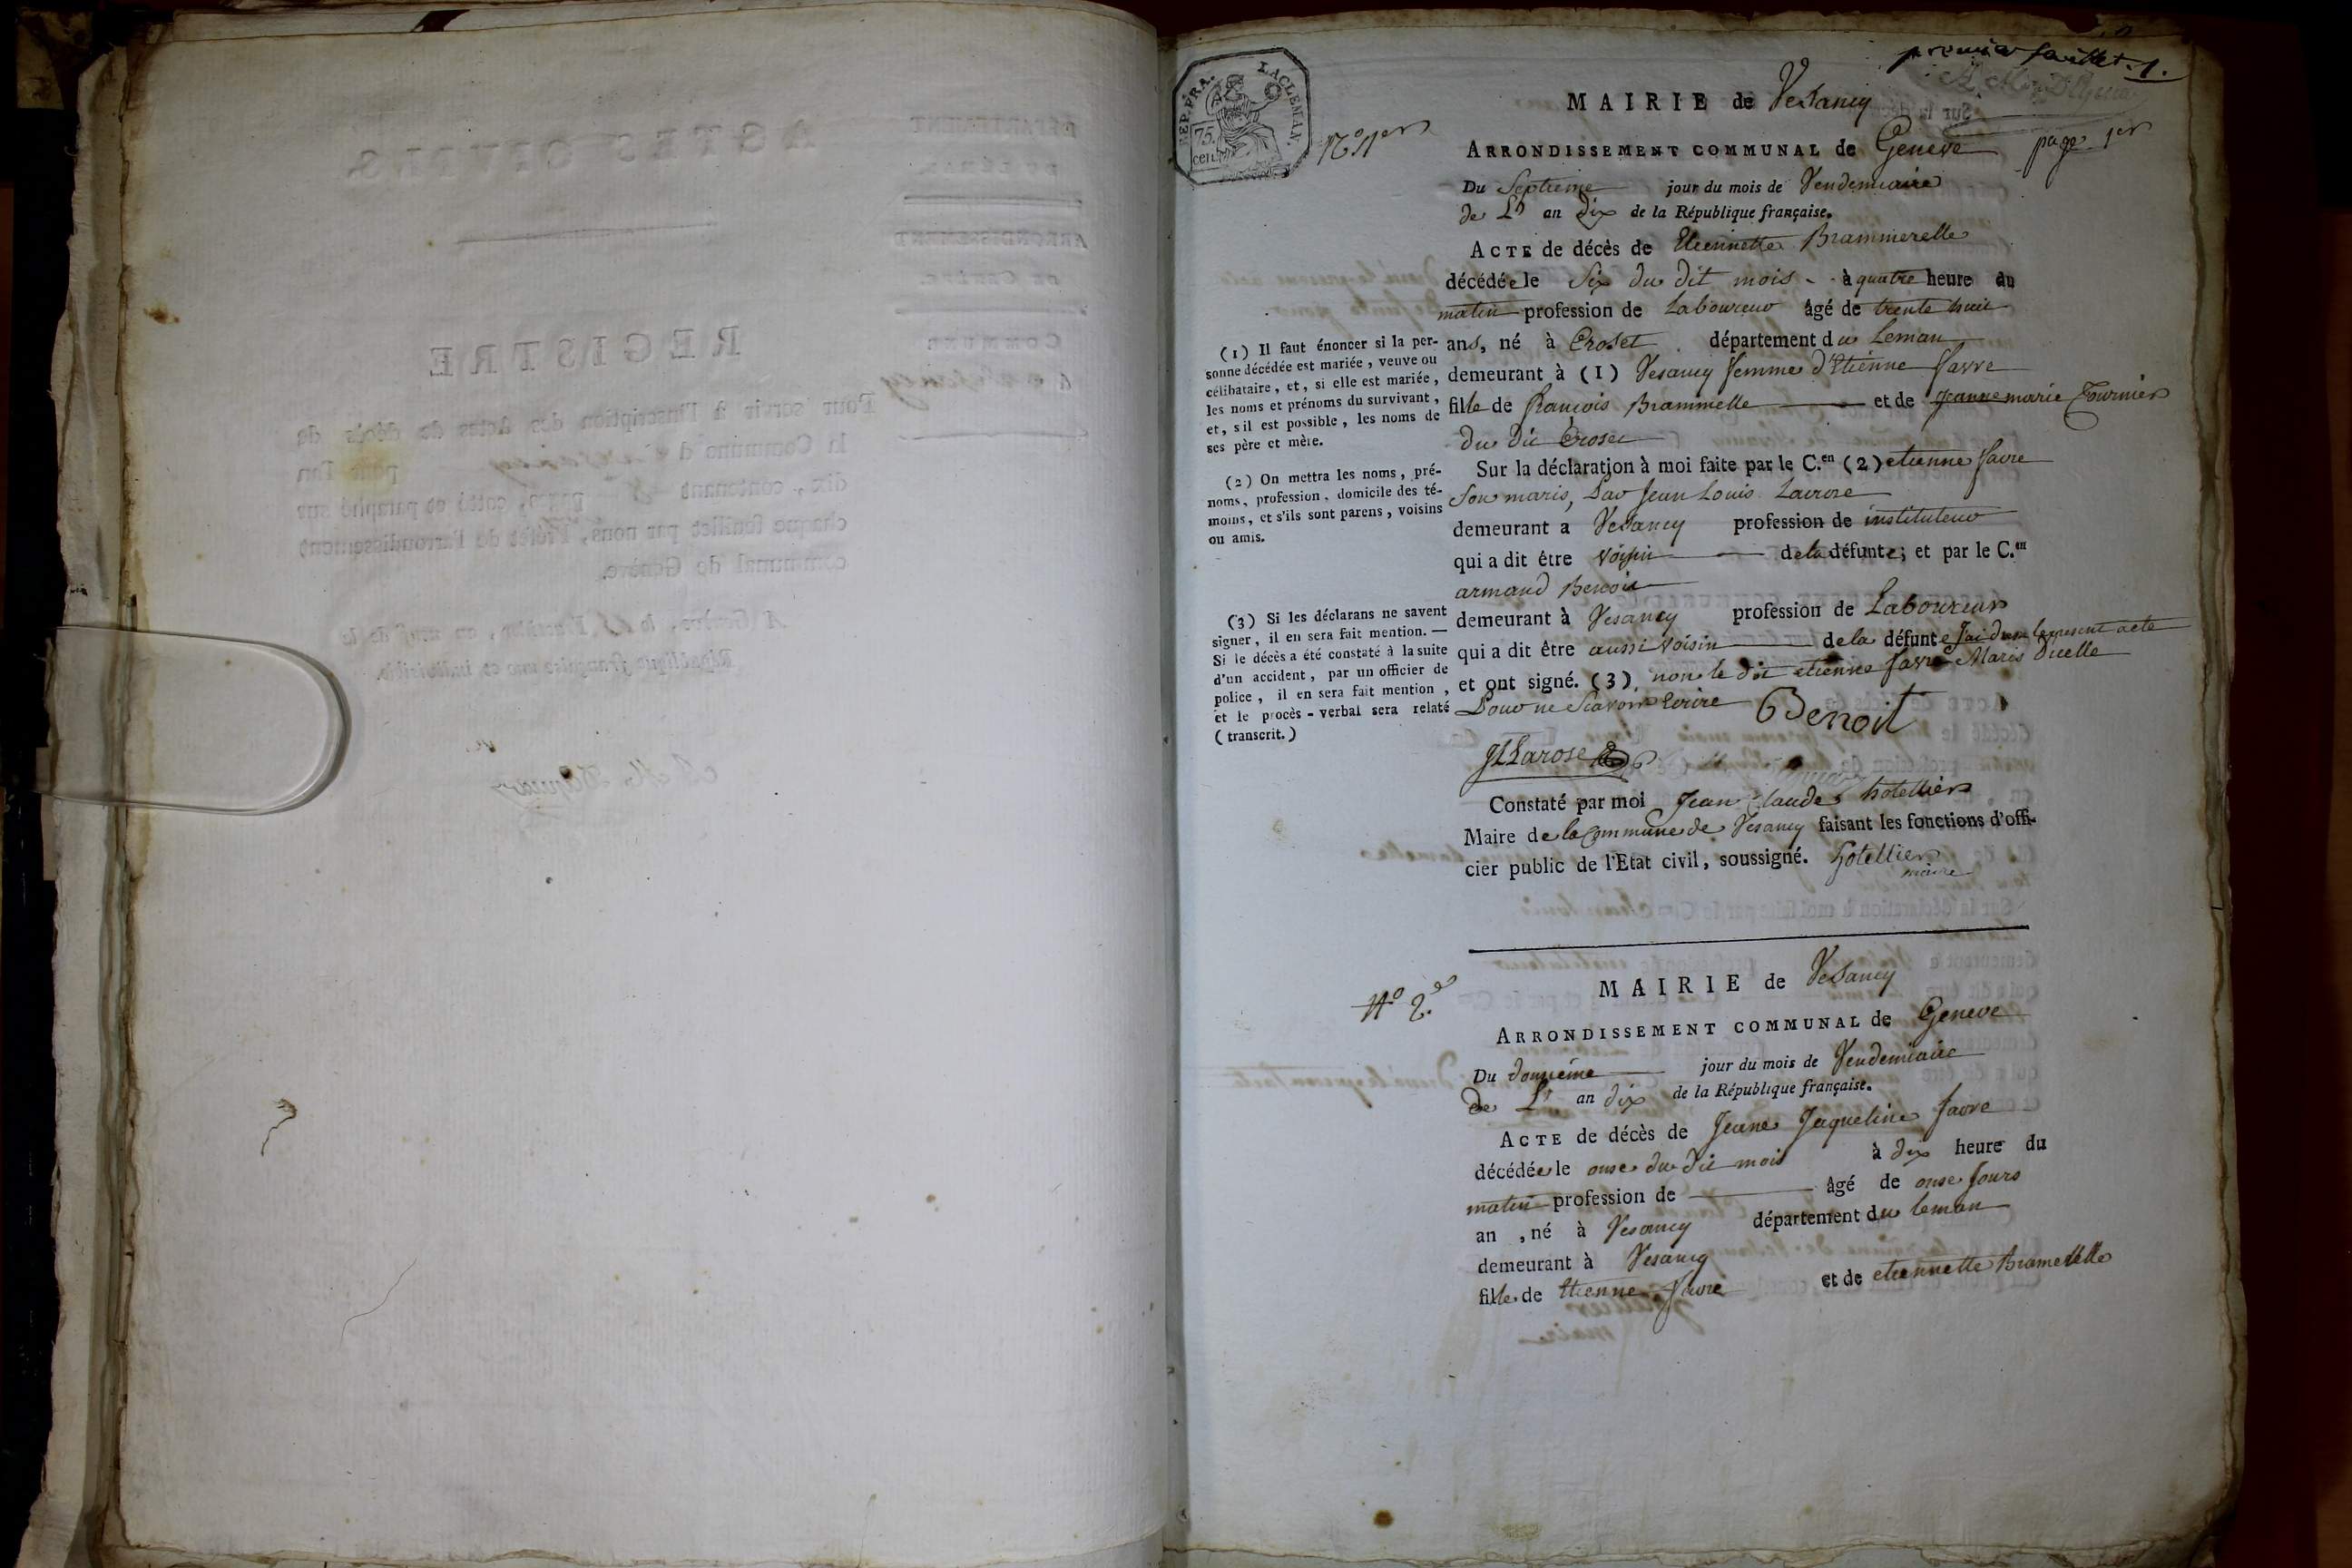 premier feuillet . 1.
REP. FRA. LAC LEMAN.
75. cent.
N.º 1er
page 1er
MAIRIE de Vesancy
ARRONDISSEMENT COMMUNAL de Geneve
Du Septieme jour du mois de Vendemiaire
de L' an dix de la République française.
ACTE de décès de Etiennette Brammerelle
décédée le Six du dit mois - à quatre heure du
matin profession de Laboureur âgé de trente huit
ans, né à Croset département du Leman
demeurant à (1) Vesancy femme d'Etienne favre
fille de francois Brammelle et de Jeanne marie Tournier
du dit Croset
Sur la déclaration à moi faite par le C.en (2) etienne favre
Son maris, Par Jean Louis Larose
demeurant a Vesancy profession de instituteur
qui a dit être voisin de la défunte; et par le C.en
armand Benoit
demeurant à Vesancy profession de Laboureur
qui a dit être aussi voisin de la défunte Jai dressé le present acte
et ont signé. (3) non le dit etienne favre Maris dicelle
Pour ne Scavoir Ecrire Benoit
JLLarose
Constaté par moi Jean Claude hotellier
Maire de la Commune de Vesancy faisant les fonctions d'offi-
cier public de l'Etat civil, soussigné. hotellier
maire
(1) Il faut énoncer si la per-
sonne décédée est mariée, veuve ou
célibataire, et, si elle est mariée,
les noms et prénoms du survivant,
et, s'il est possible, les noms de
ses père et mère.
(2) On mettra les noms, pré-
noms, profession, domicile des té-
moins, et s'ils sont parens, voisins
ou amis.
(3) Si les déclarans ne savent
signer, il en sera fait mention. —
Si le décès a été constaté à la suite
d'un accident, par un officier de
police, il en sera fait mention,
et le procès-verbal sera relaté
(transcrit.)
Nº 2.e
MAIRIE de Vesancy
ARRONDISSEMENT COMMUNAL de Geneve
Du douzieme jour du mois de Vendemiaire
de L' an dix de la République française.
ACTE de décès de Jeane Jaqueline favre
décédée le onse du dit mois à dix heure du
matin profession de âgé de onse Jours
an , né à Vesancy département du leman
demeurant à Vesancy
fille de Etienne favre et de etiennette Bramerelle